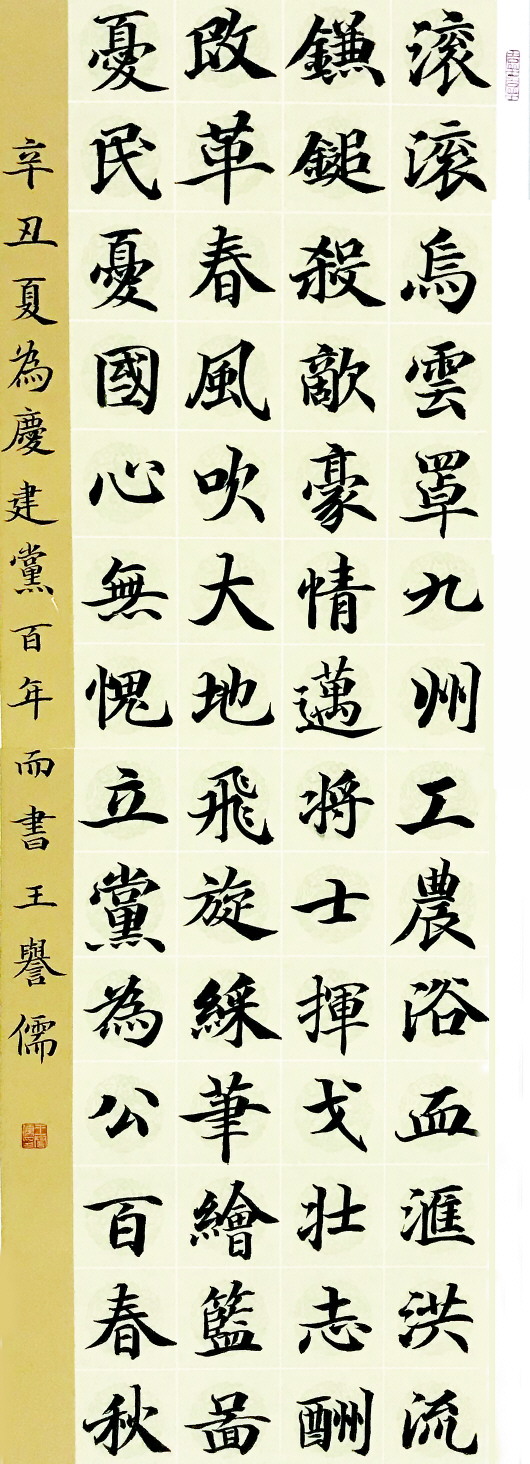 滚滚烏雲罩九州工農浴血滙洪流
鐮鎚殺敵豪情邁将士揮戈壯志酬
改革春風吹大地飛旋綵筆繪籃啚
憂民憂國心無愧立黨為公百春秋
辛丑夏為慶建黨百年而書王譽儒